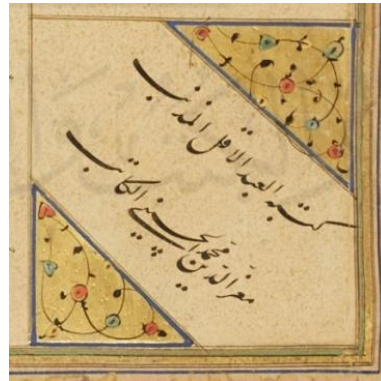 كتبه العبد الاقل المذنب
معز الدين محمد الحسيني الكاتب